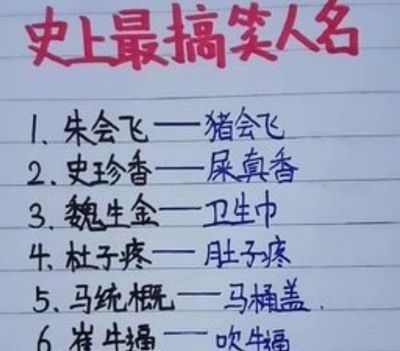 史上最搞笑人名
1、朱会飞——猪会飞
2、史珍香——屎真香
3、魏生金——卫生巾
4、杜子疼——肚子疼
5、马统概——马桶盖.
6 崔牛逼——吹牛逼